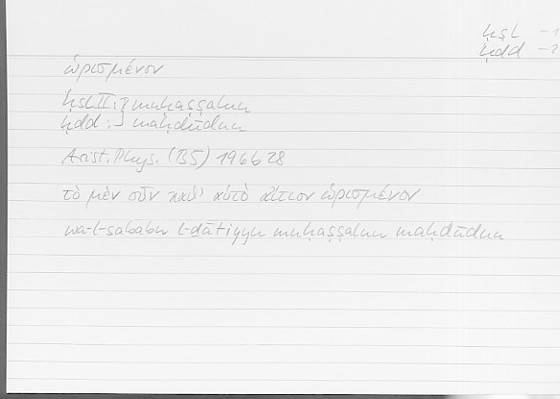 ḥṣl – 1
ḥdd – 2
ὡρισμένον
ḥṣl II: } muḥaṣṣalun
ḥdd : } maḥdūdun
Arist. Phys. (B5) 196b28
τὸ μὲν οὖν καθ' αὑτὸ αἴτιον ὡρισμένον
wa-l-sababu l-ḏātiyyu muḥaṣṣalun maḥdūdun